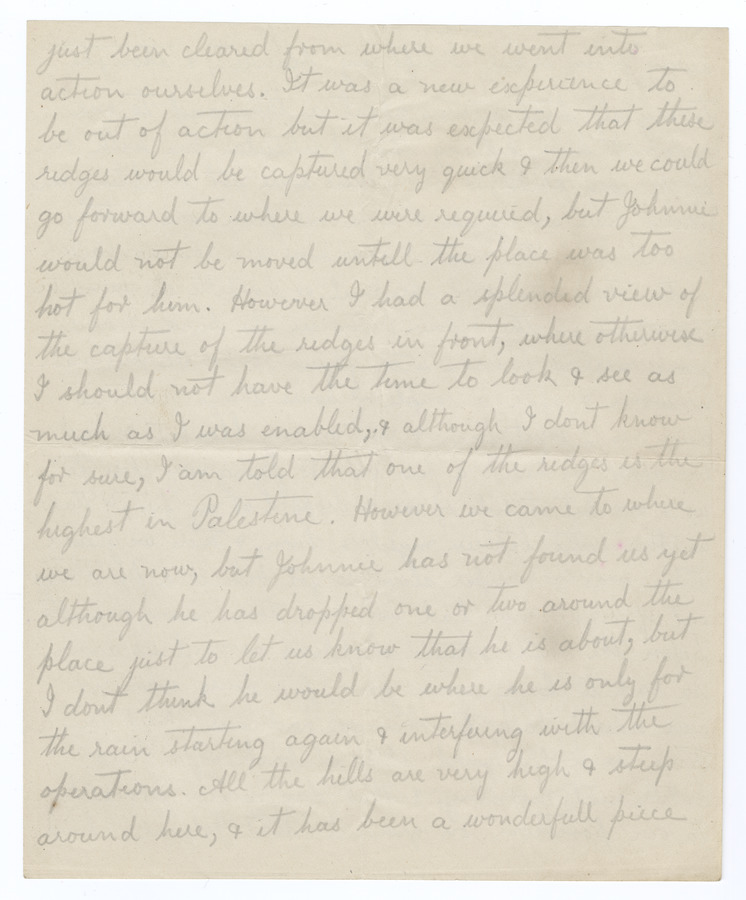 just been cleared from where we went into
action ourselves. It was a new experience to
be out of action but it was expected that these
ridges would be captured very quick & then we could
go forward to where we were required, but Johnnie
would not be moved untill the place was too
hot for him. However I had a splended view of
the capture of the ridges in front, where otherwise
I should not have the time to look & see as
much as I was enabled, & although I dont know
for sure, I am told that one of the ridges is the
highest in Palestine. However we came to where
we are now, but Johnnie has not found us yet
although he has dropped one or two around the
place just to let us know that he is about, but
I dont think he would be where he is only for
the rain starting again & interfering with the
operations. All the hills are very high & steep
around here, & it has been a wonderfull piece